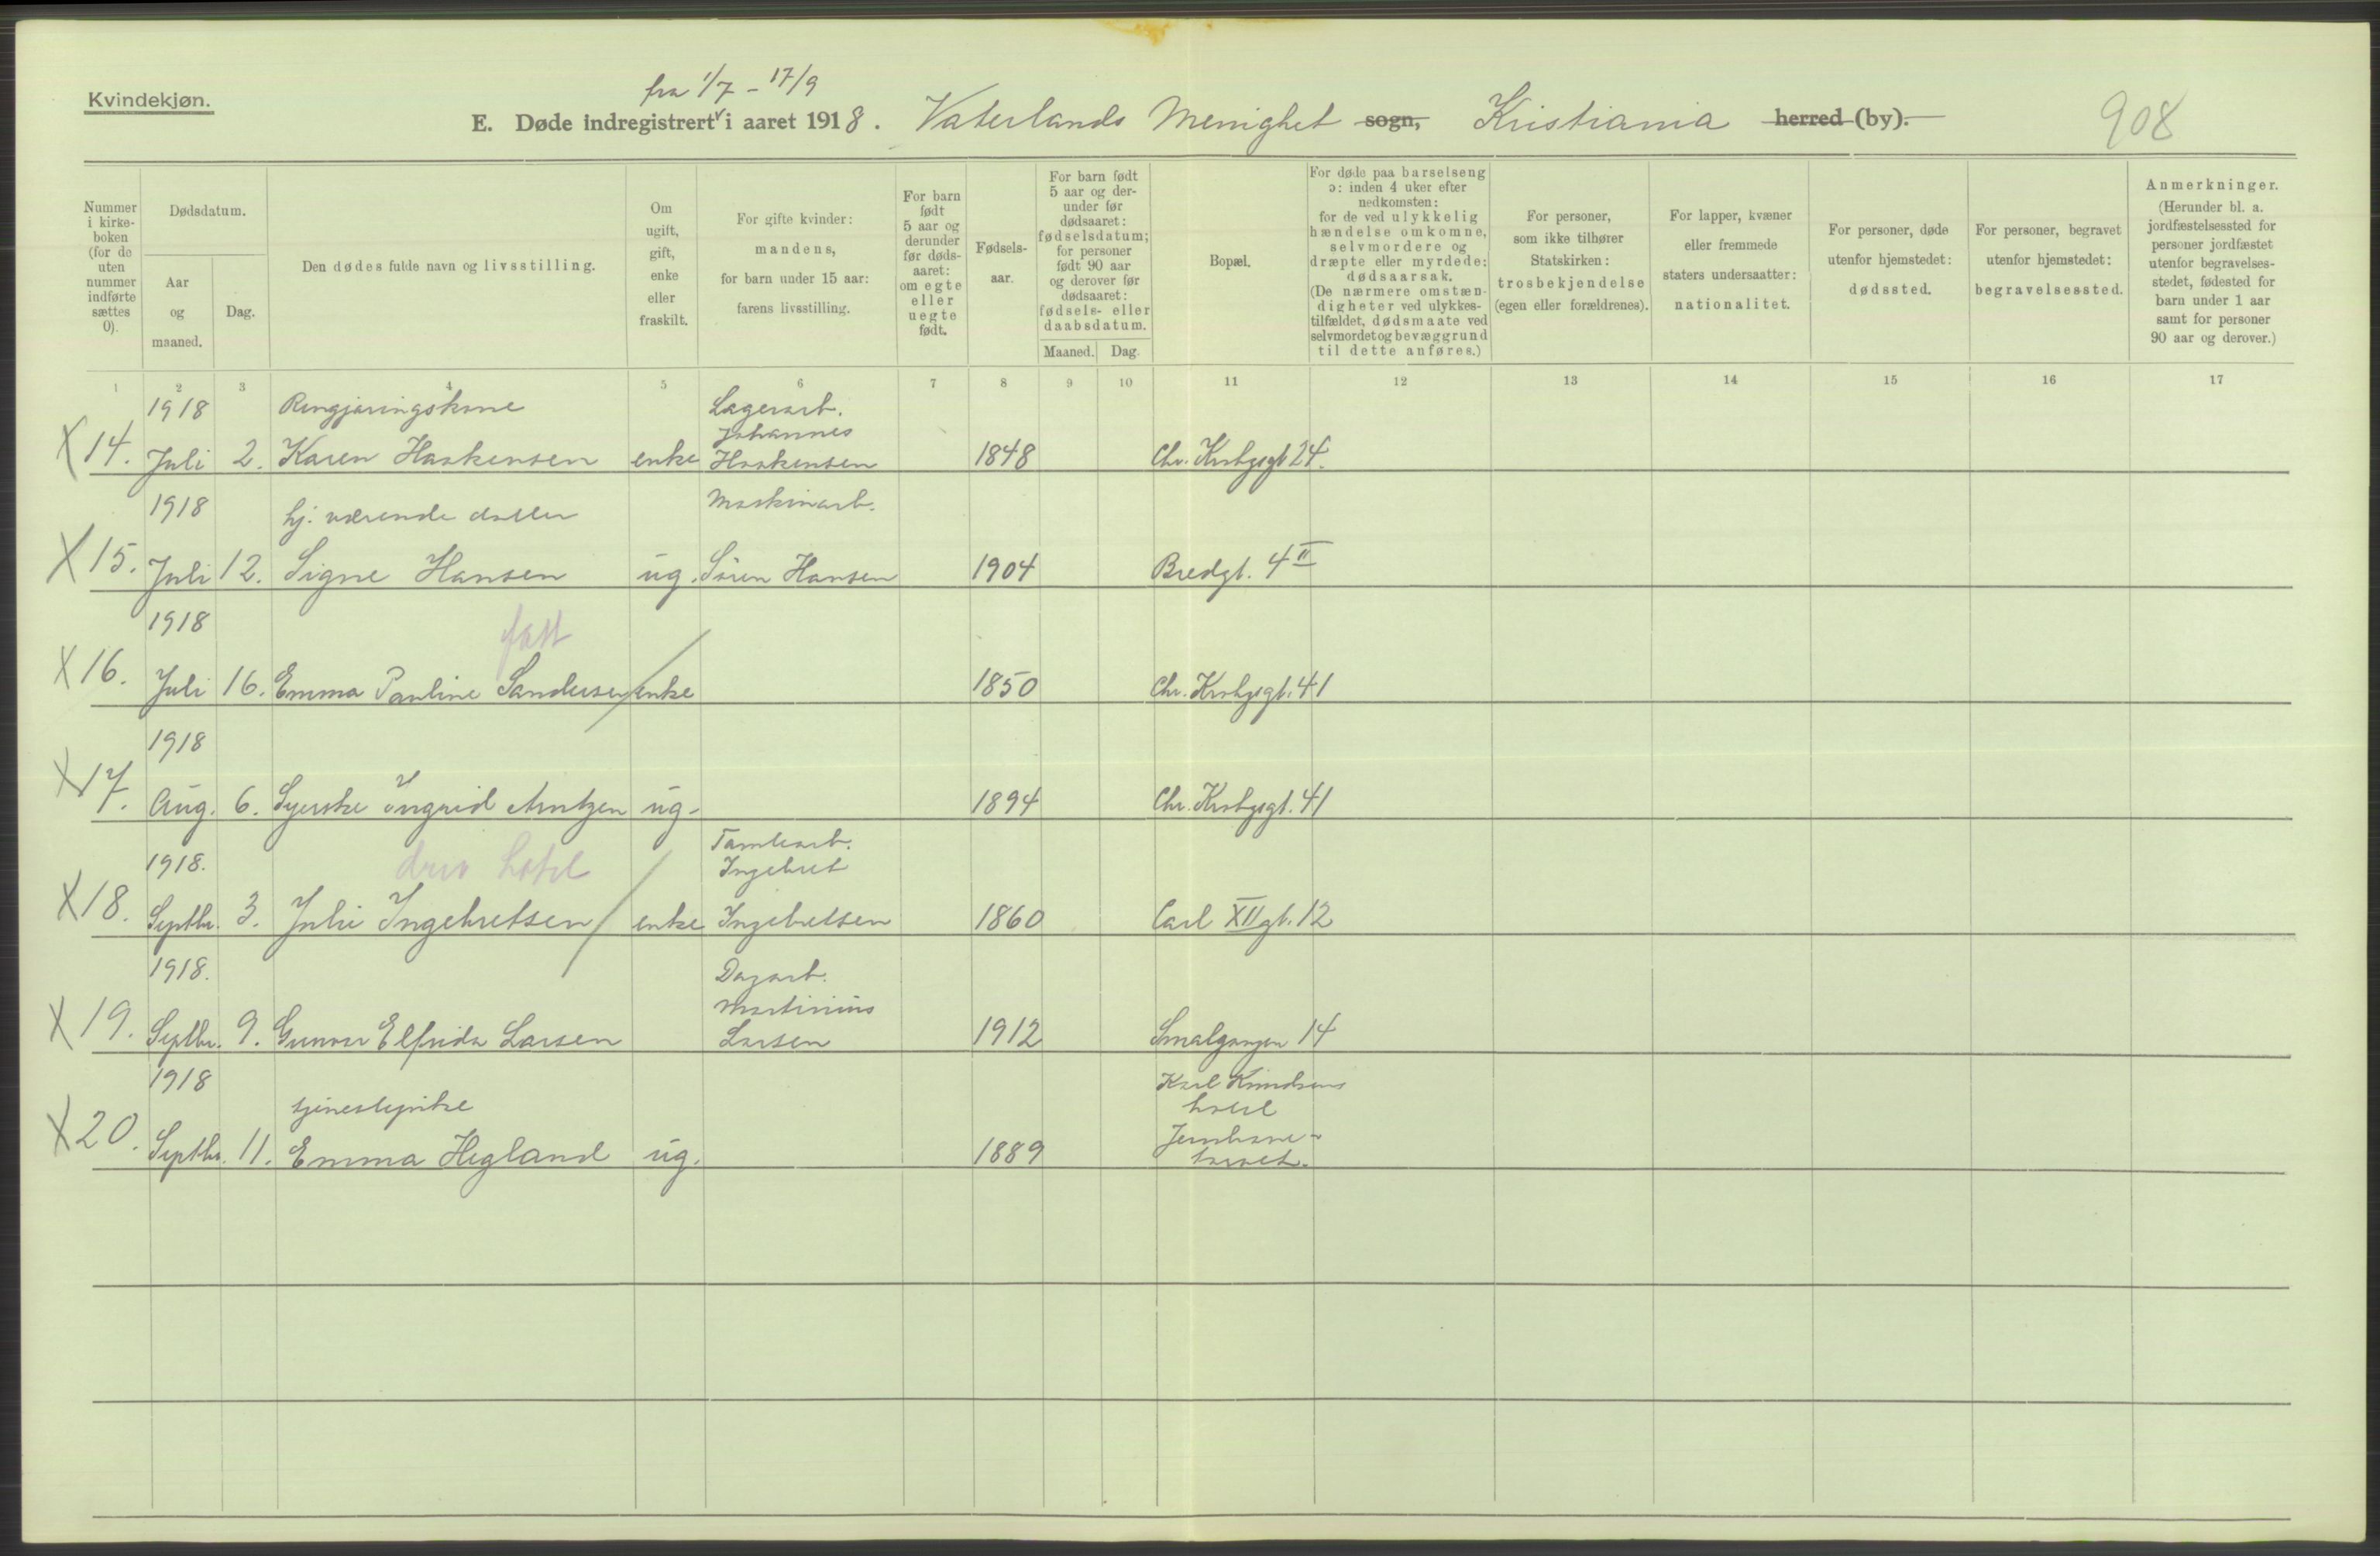 Kvindekjøn.
fra 1/7 - 17/9
E. Døde indregistrert i aaret 1918. Vaterlands Menighet sogn, Kristiania herred (by).
908
Nummer i kirkeboken (for de uten nummer indførte sættes 0).
Dødsdatum.
Aar og maaned.
Dag.
Den dødes fulde navn og livsstilling.
Om ugift, gift, enke eller fraskilt.
For gifte kvinder: mandens, for barn under 15 aar: farens livsstilling.
For barn født 5 aar og derunder før dødsaaret: om egte eller uegte født.
Fødselsaar.
For barn født 5 aar og derunder før dødsaaret: fødselsdatum; for personer født 90 aar og derover før dødsaaret: fødsels- eller daabsdatum.
Maaned.
Dag.
Bopæl.
For døde paa barselseng ɔ: inden 4 uker efter nedkomsten: for de ved ulykkelig hændelse omkomne, selvmordere og dræpte eller myrdede: dødsaarsak. (De nærmere omstændigheter ved ulykkestilfældet, dødsmaate ved selvmordet og bevæggrund til dette anføres.)
For personer, som ikke tilhører Statskirken: trosbekjendelse (egen eller forældrenes).
For lapper, kvæner eller fremmede staters undersaatter: nationalitet.
For personer, døde utenfor hjemstedet: dødssted.
For personer, begravet utenfor hjemstedet: begravelsessted.
Anmerkninger. (Herunder bl. a. jordfæstelsessted for personer jordfæstet utenfor begravelsesstedet, fødested for barn under 1 aar samt for personer 90 aar og derover.)
1 2 3 4 5 6 7 8 9 10 11 12 13 14 15 16 17
1918 Rengjøringskone Lagerarb.
Johannes
X 14. Juli 2. Karen Haakensen enke Haakensen 1848 Chr. Krohgsgt 24.
1918 hj. værende datter Maskinarb.
X 15. Juli 12. Signe Hansen ug. Søren Hansen 1904 Bredgt. 4 II
1918 fatt
X 16. Juli 16. Emma Pauline Sandersen enke 1850 Chr. Krohgsgt. 41
1918
X 17. Aug. 6. Syerske Ingrid Arntzen ug. 1894 Chr. Krohgsgt. 41
1918. drev hotel Tomtearb.
Ingebret
X 18. Septbr. 3. Julie Ingebretsen enke Ingebretsen 1860 Carl XII gt. 12
1918. Dagarb.
Martinius
X 19. Septbr. 9. Gunvor Elfrida Larsen Larsen 1912 Smalgangen 14
1918 Karl Knudsens
tjenestepike hotel
Jernbane-
X 20. Septbr. 11. Emma Hegland ug. 1889 torvet.